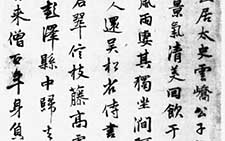 居太史雲嶠公子
景氣清美回飲于
風雨婁其獨坐澗
人還吳松右侍書
君翠竹枝藤高雲
彭澤縣中歸去
來僧百年身負